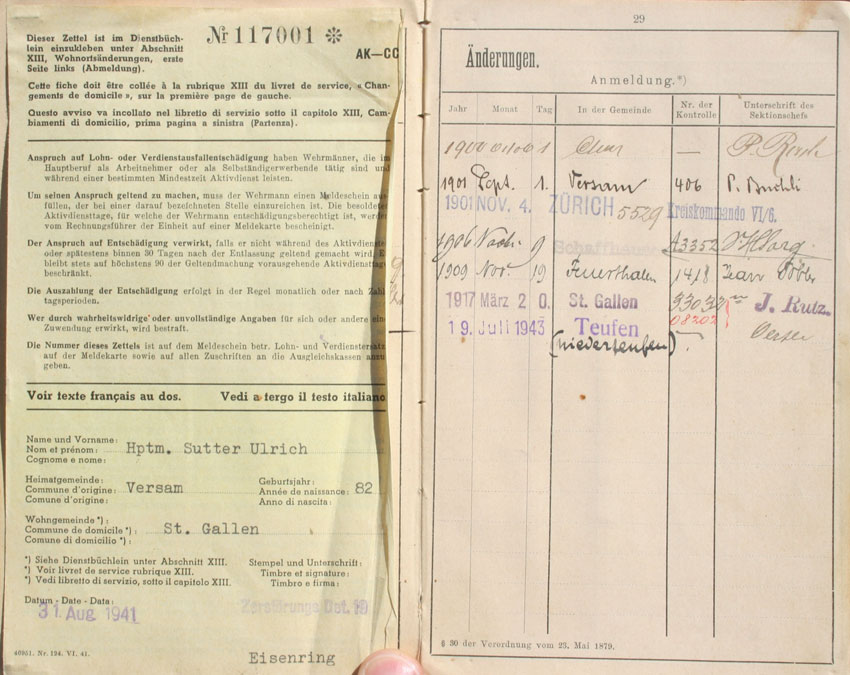 Dieser Zettel ist im Dienstbüch-
lein einzukleben unter Abschnitt
XIII, Wohnortsänderungen, erste
Seite links (Abmeldung).
Nr 117001 ✻
AK—CC
Cette fiche doit être collée à la rubrique XIII du livret de service, « Chan-
gements de domicile », sur la première page de gauche.
Questo avviso va incollato nel libretto di servizio sotto il capitolo XIII, Cam-
biamenti di domicilio, prima pagina a sinistra (Partenza).
Anspruch auf Lohn- oder Verdienstausfallentschädigung haben Wehrmänner, die im
Hauptberuf als Arbeitnehmer oder als Selbständigerwerbende tätig sind und
während einer bestimmten Mindestzeit Aktivdienst leisten.
Um seinen Anspruch geltend zu machen, muss der Wehrmann einen Meldeschein aus-
füllen, der bei einer darauf bezeichneten Stelle einzureichen ist. Die besoldeten
Aktivdiensttage, für welche der Wehrmann entschädigungsberechtigt ist, werden
vom Rechnungsführer der Einheit auf einer Meldekarte bescheinigt.
Der Anspruch auf Entschädigung verwirkt, falls er nicht während des Aktivdienstes
oder spätestens binnen 30 Tagen nach der Entlassung geltend gemacht wird. E
bleibt stets auf höchstens 90 der Geltendmachung vorausgehende Aktivdiensttage
beschränkt.
Die Auszahlung der Entschädigung erfolgt in der Regel monatlich oder nach Zahl-
tagsperioden.
Wer durch wahrheitswidrige oder unvollständige Angaben für sich oder andere eine
Zuwendung erwirkt, wird bestraft.
Die Nummer dieses Zettels ist auf dem Meldeschein betr. Lohn- und Verdienstersatz,
auf der Meldekarte sowie auf allen Zuschriften an die Ausgleichskassen anzu-
geben.
Voir texte français au dos. Vedi a tergo il testo italiano
Name und Vorname:
Nom et prénom: Hptm. Sutter Ulrich
Cognome e nome:
Heimatgemeinde: Geburtsjahr:
Commune d'origine: Versam Année de naissance: 82
Comune d'origine: Anno di nascita:
Wohngemeinde *):
Commune de domicile *): St. Gallen
Comune di domicilio *):
*) Siehe Dienstbüchlein unter Abschnitt XIII. Stempel und Unterschrift:
*) Voir livret de service rubrique XIII. Timbre et signature:
*) Vedi libretto di servizio, sotto il capitolo XIII. Timbro e firma:
Datum - Date - Data:
31. Aug. 1941 Zerstörungs Det. 19
Eisenring
40951. Nr. 194. VI. 41.
29
Änderungen.
Anmeldung.*)
Jahr Monat Tag In der Gemeinde Nr. der Kontrolle Unterschrift des Sektionschefs
1900 1 Chur —
1901 Sept. 1. Versam 406 P. Buchli
1901 NOV. 4. ZÜRICH 5529 Kreiskommando VI/6.
1906 9 Schaffhausen A3352
1909 Nov. 19 Feuerthalen 1418
1917 März 20. St. Gallen 33032 J. Rutz.
08202
19. Juli 1943 Teufen
(Niederteufen)
§ 30 der Verordnung vom 23. Mai 1879.